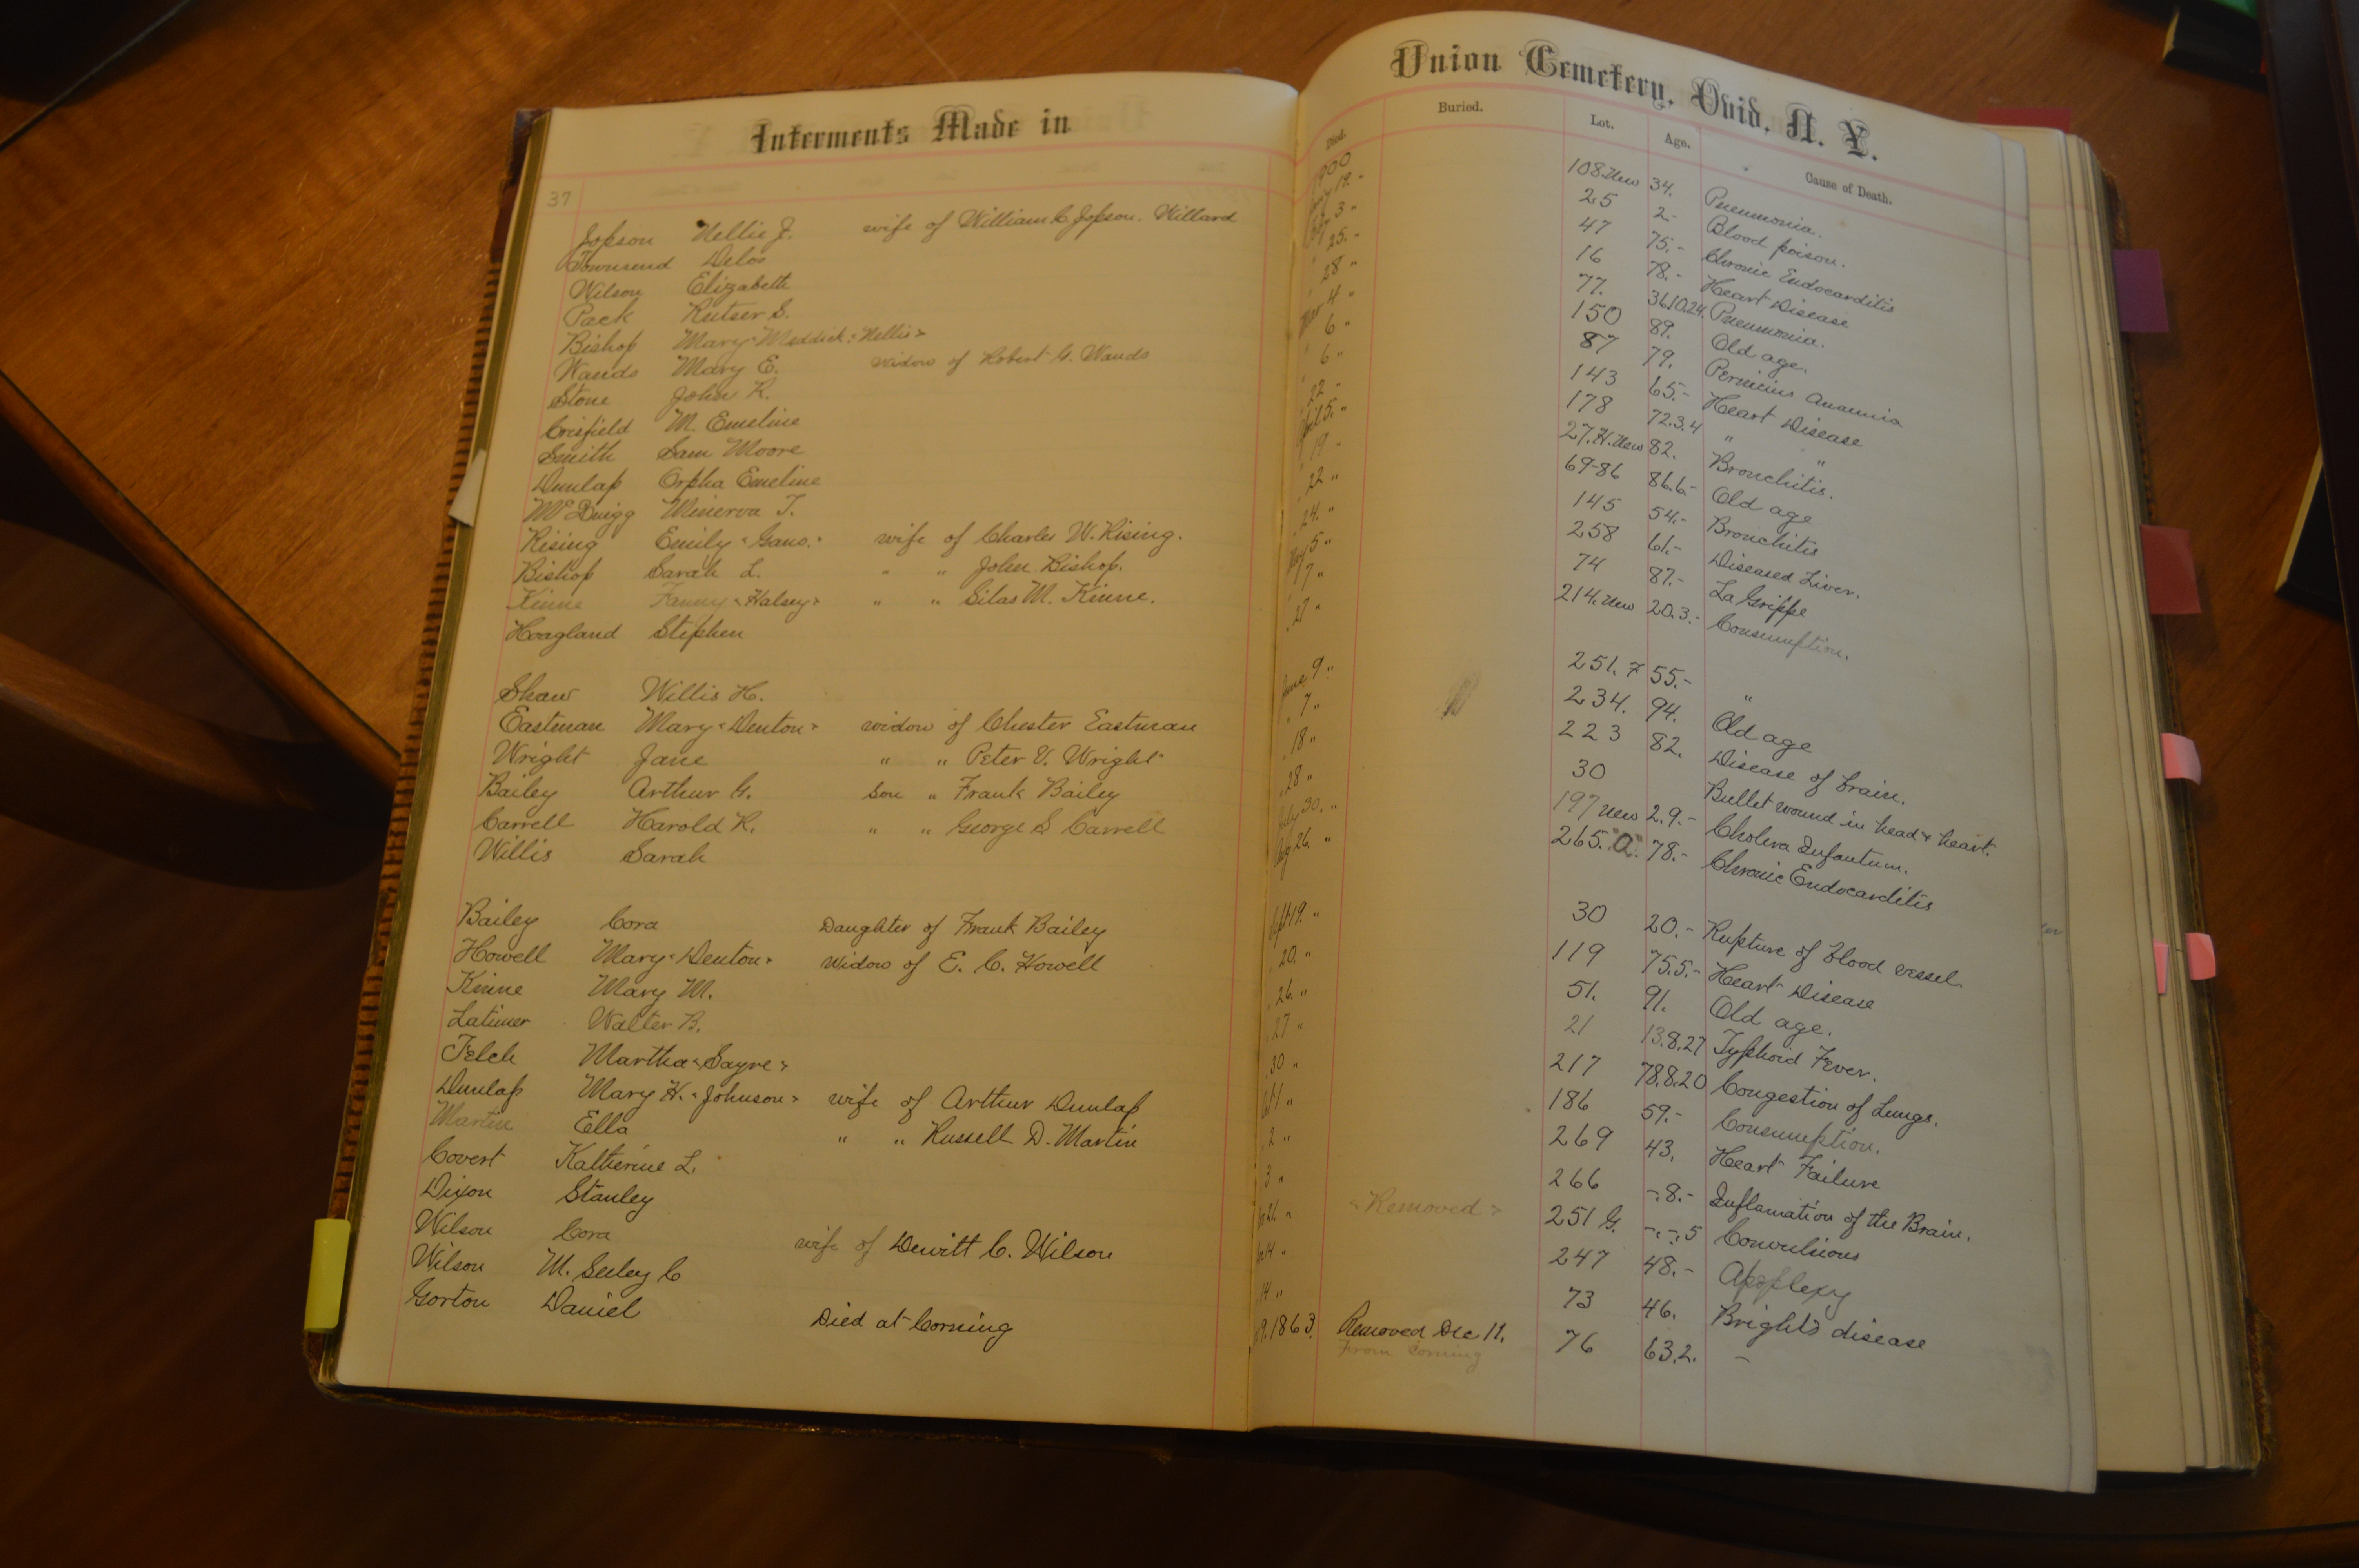 Interments Made in
37
Jopson Nellie J. wife of William C Jopson. Willard
Townsend Delos
Wilson Elizabeth
Pack Rutser S.
Bishop Mary "Meddick" "Nellis"
Wands Mary E. widow of Robert G. Wands
Stone John R.
Crisfield M. Emeline
Smith Sam Moore
Dunlap Orpha Emeline
McDuigg Minerva T.
Rising Emily "Gans." wife of Charles W. Rising.
Bishop Sarah L. " " John Bishop.
Kinne Fanny "Halsey" " " Silas M. Kinne.
Hoagland Stephen
Shaw Willis H.
Eastman Mary "Denton" widow of Chester Eastman
Wright Jane " " Peter V. Wright
Bailey Arthur G. Son " Frank Bailey
Carrell Harold R. " " George S Carrell
Willis Sarah
Bailey Cora Daughter of Frank Bailey
Howell Mary "Denton" Widow of E. C. Howell
Kinne Mary M.
Latimer Walter B.
Felch Martha "Sayre"
Dunlap Mary H. "Johnson" wife of Arthur Dunlap
Martin Ella " " Russell D. Martin
Covert Katherine L.
Dixon Stanley
Wilson Cora wife of Dewitt C. Wilson
Wilson M. Seeley C
Gorton Daniel Died at Corning
Union Cemetery, Ovid, N. Y.
Died. Buried. Lot. Age. Cause of Death.
1900
19 " 108 New 34. Pneumonia.
3 " 25 2- Blood poison.
" 25. " 47 75.- Chronic Endocarditis
" 28 " 16 78.- Heart Disease
Mar 4 " 77. 36.10.24. Pneumonia.
" 6 " 150 89. Old age.
" 6 " 87 79. Pernicius Anaemia
" 22 " 143 65.- Heart Disease
April 5. " 178 72.3.4 " "
" 19 " 27.H.New 82. Bronchitis.
" 22 " 69-86 86.6.- Old age
" 24. " 145 54.- Bronchitis
May 5 " 258 61.- Diseased Liver.
" 7 " 74 87.- La Grippe
" 27 " 214. New 20.3.- Consumption.
June 9 " 251. F 55.- "
" 7 " 234. 94. Old age
" 18 " 223 82. Disease of brain.
" 28 " 30 Bullet wound in head & heart.
July 30. " 197 New 2.9.- Cholera Infantum.
Aug 26. " 265. "a" 78.- Chronic Endocarditis
Sept 19. " 30 20.- Rupture of blood vessel.
" 20. " 119 75.5.- Heart Disease
" 26. " 51. 91. Old age.
" 27 " 21 13.8.27 Typhoid Fever.
" 30 " 217 78.8.20 Congestion of Lungs.
Oct 1 " 186 59.- Consumption.
" 2 " 269 43. Heart Failure
" 3 " 266 -.8.- Inflamation of the Brain.
21. " "Removed" 251 G. -.-.5 Convulsions
4 " 247 48.- Apoplexy
" 14 " 73 46. Bright's disease
9. 1863. Removed Dec 11. 76 63.2. -
From Corning